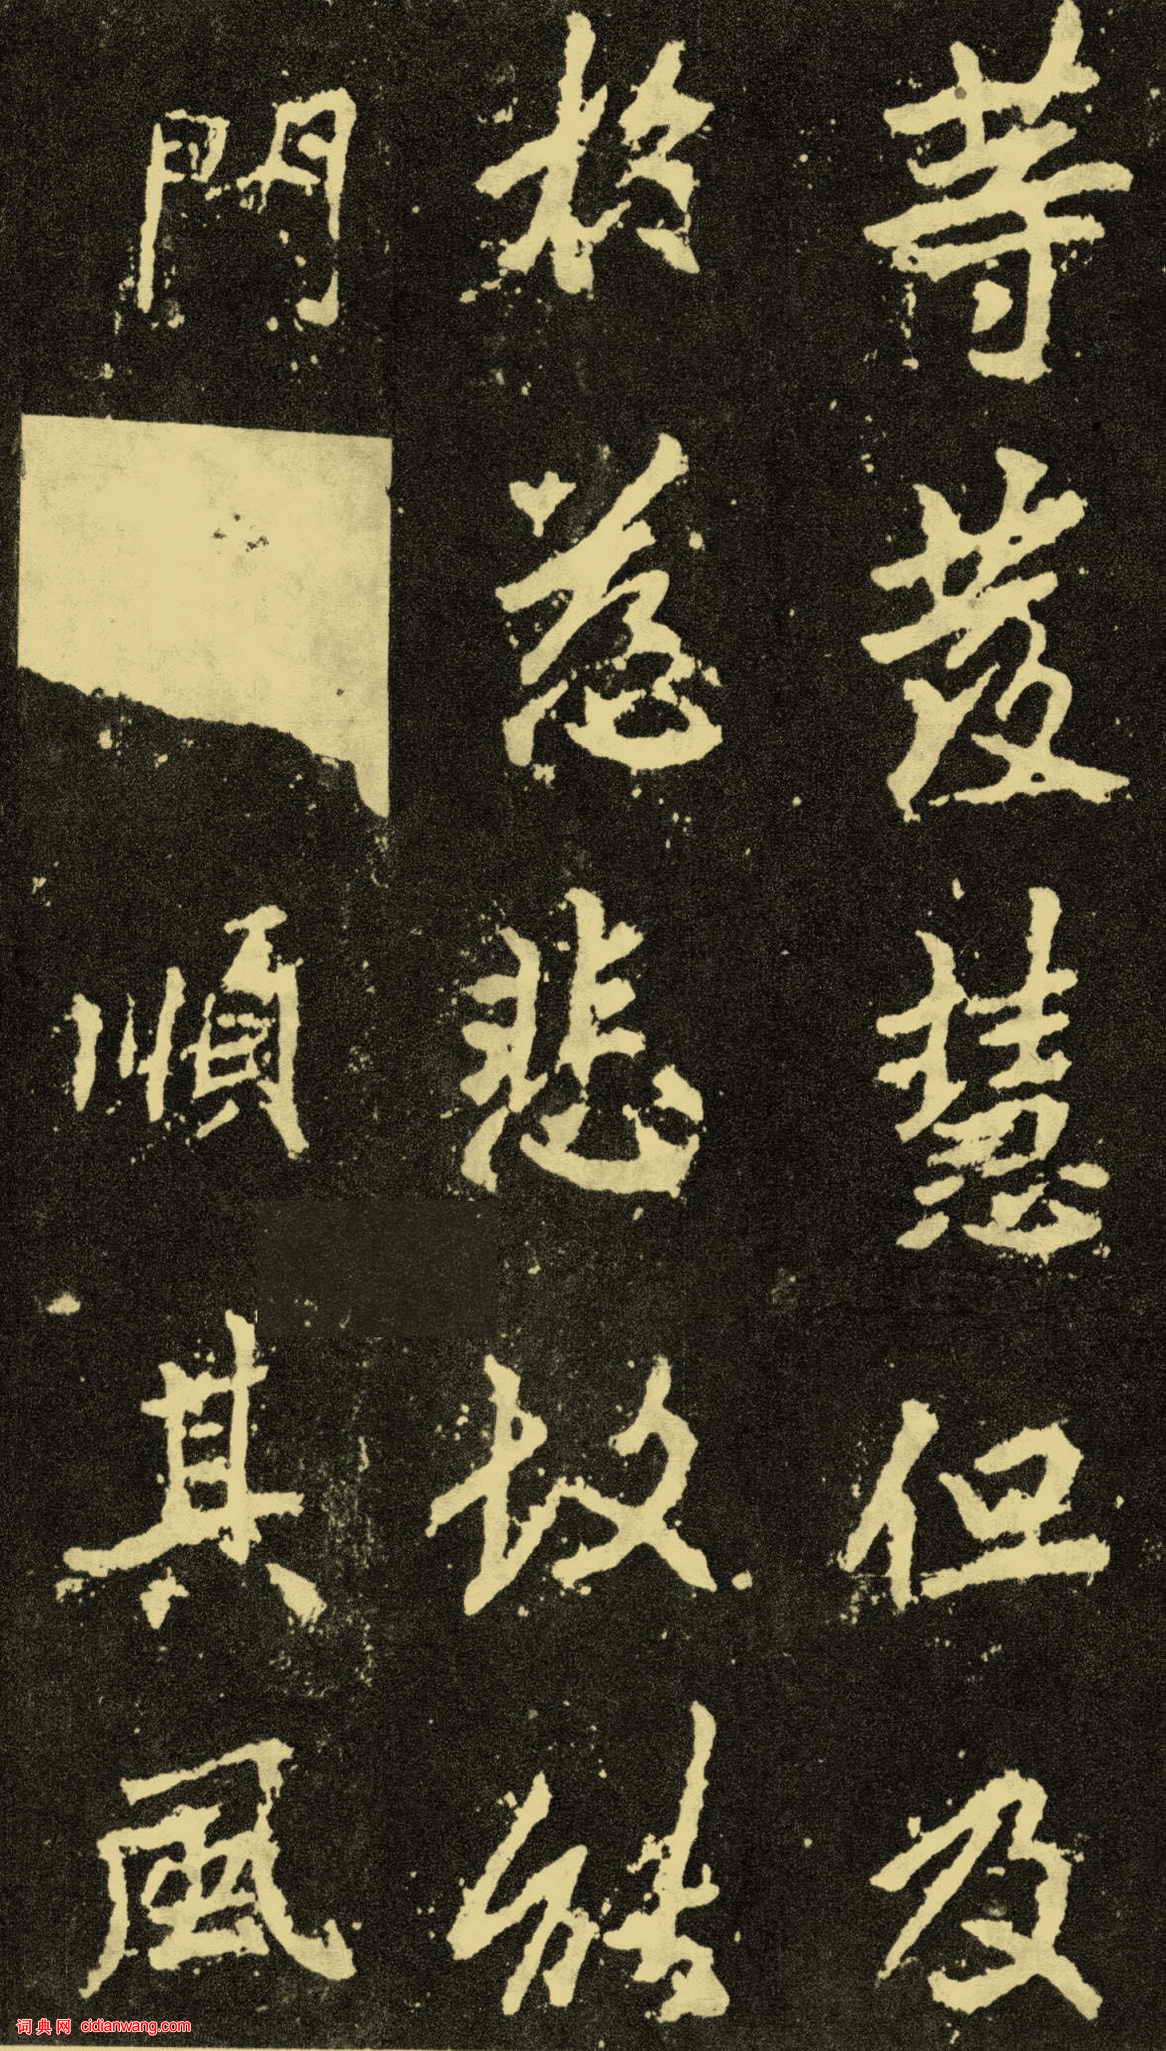 等發慧但及
於慈悲故能
門順其風
词典网 cidianwang.com